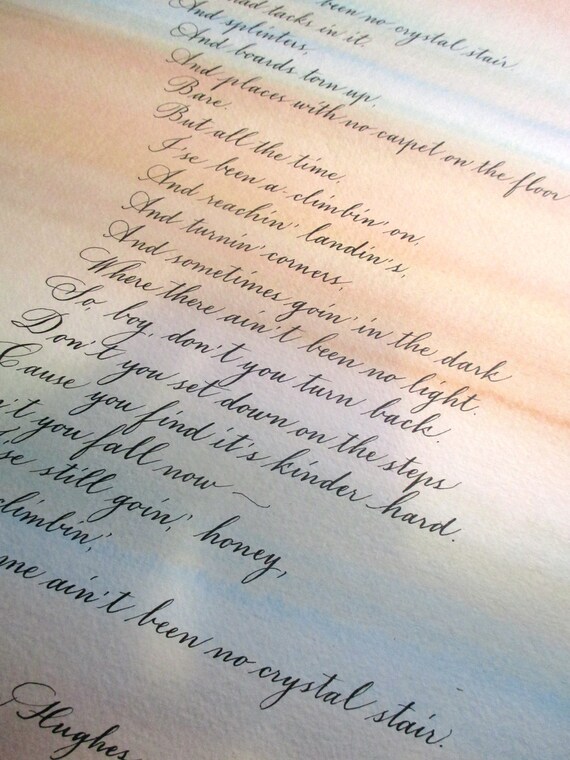 been no crystal stair
had tacks in it.
And splinters,
And boards torn up.
And places with no carpet on the floor
Bare.
But all the time.
I'se been a-climbin' on,
And reachin' landin's,
And turnin' corners,
And sometimes goin' in the dark
Where there ain't been no light.
So, boy, don't you turn back.
Don't you set down on the steps
Cause you find it's kinder hard.
you fall now ~
still goin', honey,
climbin',
me ain't been no crystal stair.
Hughes